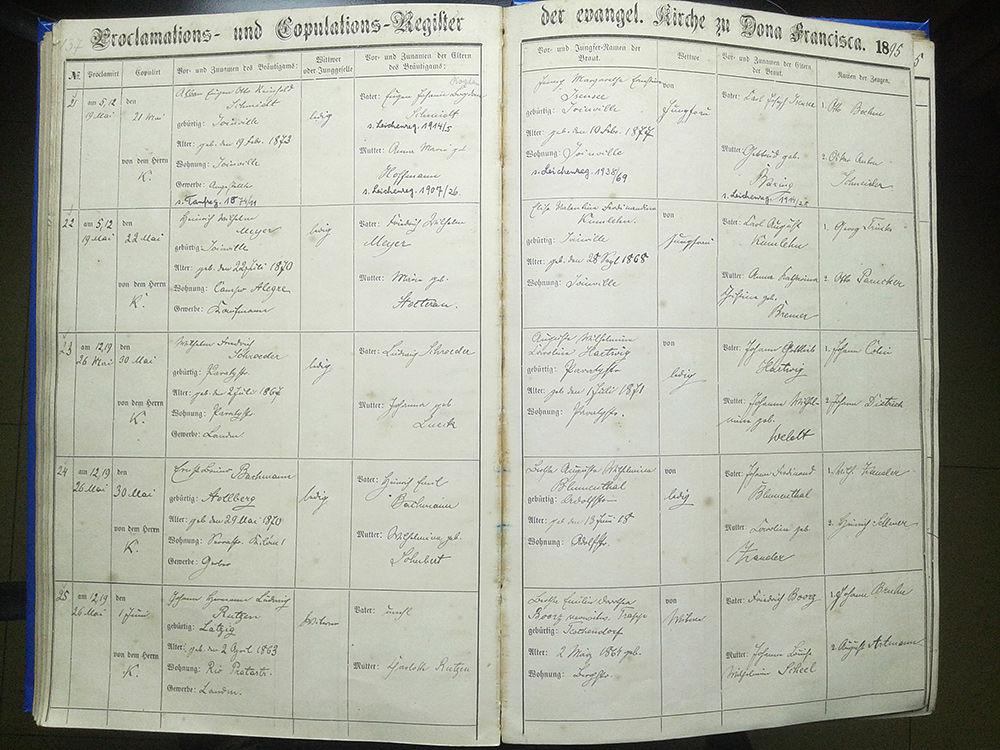 137
Proclamations- und Copulations-Register
der evangel. Kirche zu Dona Francisca. 1895
№ Proclamirt Copulirt Vor- und Zunamen des Bräutigams: Wittwer oder Junggeselle Vor- und Zunamen der Eltern des Bräutigams:
Vor- und Jungfer-Namen der Braut. Wittwe Vor- und Zunamen der Eltern der Braut. Namen der Zeugen.
21 am 5,12 19 Mai
den 21 Mai
von dem Herrn K.
Alban Eugen Otto Reinhold
Schmidt
gebürtig: Joinville
Alter: geb. den 19 Febr. 1873
Wohnung: Joinville
Gewerbe: Angestellter
s. Taufreg. 1874/
ledig
Vater: Eugen Johann
Schmidt
s. Leichenreg. 1914/5
Mutter: Anna Marie geb.
Hoffmann
s. Leichenreg. 1907/26.
Jenny Margarethe Ernestine
Isensee
gebürtig: Joinville
Alter: geb. den 10 Febr. 1877
Wohnung: Joinville
s. Leichenreg. 1938/69
von
Jungfrau
Vater: Carl Josef Isensee
Mutter: Gertrud geb.
Büring
s. Leichenreg. 1914/
1. Otto Boehm
2.
Schneider
22 am 5,12 19 Mai
den 22 Mai
von dem Herrn K.
Heinrich Wilhelm
Meyer
gebürtig: Joinville
Alter: geb. den 22 Juli 1870
Wohnung: Campo Alegre
Gewerbe: Kaufmann
ledig
Vater: Friedrich Wilhelm
Meyer
Mutter: Marie geb.
Elise Valentine Ferdinandine
Kumlehn.
gebürtig: Joinville
Alter: geb. den 28 Sept 1868
Wohnung: Joinville
von
Jungfrau
Vater: Carl August
Kumlehn
Mutter: Anna Katharina
geb.
Bremer
1. Georg Trinks
2. Otto Parucker
23 am 12,19 26 Mai
den 30 Mai
von dem Herrn K.
Wilhelm Friedrich
Schroeder
gebürtig: Paratystr
Alter: geb. den 2 Juli 1867
Wohnung: Paratystr
Gewerbe: Landm
ledig
Vater: Ludwig Schroeder
Mutter: Johanna geb
Lueck
Auguste Wilhelmine
Caroline Hartwig
gebürtig: Paratystr
Alter: geb den 1 Juli 1871
Wohnung: Paratystr.
von
ledig
Vater: Johann Gottlieb
Hartwig
Mutter: Johanne Wilhel-
mine geb.
1. Johann Colin
2. Johann Dietrich
24 am 12,19 26 Mai
den 30 Mai
von dem Herrn K.
Ernst Bruno Bachmann
gebürtig:
Alter: geb den 29 Mai 1870
Wohnung:
Gewerbe: Gerber
ledig
Vater: Heinrich Emil
Bachmann
Mutter: Wilhelmina geb.
Schubert
Bertha Auguste Wilhelmina
Blumenthal
gebürtig:
Alter: geb den 13 Juni 18
Wohnung:
von
ledig
Vater: Johann Ferdinand
Blumenthal
Mutter: Caroline geb
Zander
1.
2. Heinrich
25 am 12,19 26 Mai
den 1 Juni
von dem Herrn K.
Johann Hermann Ludwig
Rutzen
gebürtig: Latzig
Alter: geb. den 2 April 1863
Wohnung: Rio Pratastr.
Gewerbe: Landm.
Witwer
Vater:
Mutter: Charlotte Rutzen
Bertha Emilie Dorothea
Boorz
gebürtig:
Alter: 2 März 1864 geb.
Wohnung:
von
Witwe
Vater: Friedrich Boorz
Mutter: Johanna Louise
Wilhelmine Scheel
1. Johann
2. August Artmann